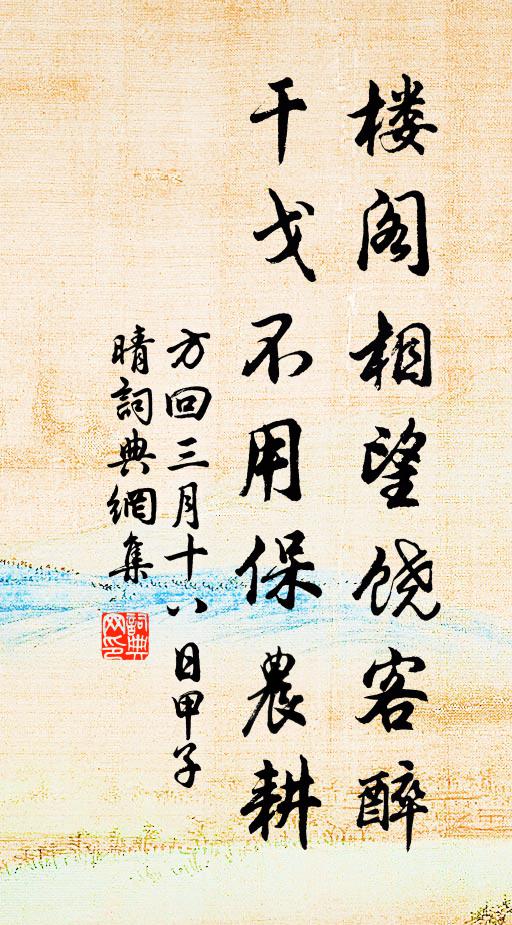 楼阁相望饶客醉
干戈不用保農耕
方回三月十八日甲子
晴詞典網集
詞典网印